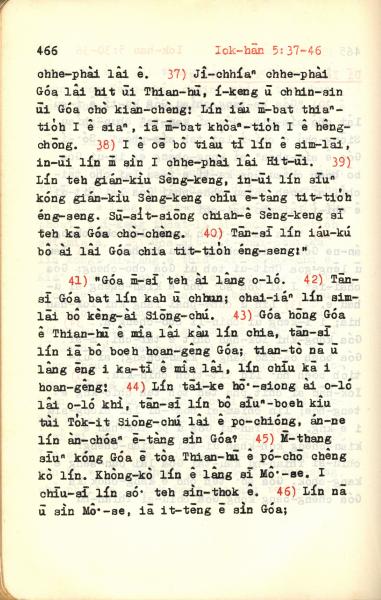 466 Iok-hān 5:37-46
chhe-phài lâi ê. 37) Jî-chhíaⁿ chhe-phài
Góa lâi hit ūi Thian-hū, í-keng ū chhin-sin
ūi Góa chò kiàn-chèng! Lín iáu m̄-bat thiaⁿ-
tio̍h I ê siaⁿ, iā m̄-bat khòaⁿ-tio̍h I ê hêng-
chōng. 38) I ê oē bô tiâu tī lín ê sim-lāi,
in-ūi lín m̄ sìn I chhe-phài lâi Hit-ūi. 39)
Lín teh gián-kìu Sèng-keng, in-ūi lín sīuⁿ
kóng gián-kìu Sèng-keng chīu ē-tàng tit-tio̍h
éng-seng. Sū-si̍t-siōng chiah-ê Sèng-keng sī
teh kā Góa chò-chèng. 40) Tān-sī lín iáu-kú
bô ài lâi Góa chia tit-tio̍h éng-seng!"
41) "Góa m̄-sī teh ài lâng o-ló. 42) Tān-
sī Góa bat lín kah ū chhun; chai-iáⁿ lín sim-
lāi bô kèng-ài Siōng-chú. 43) Góa hōng Góa
ê Thian-hū ê mîa lâi kàu lín chia, tān-sī
lín iā bô boeh hoan-gêng Góa; tian-tò nā ū
lâng ēng i ka-tī ê mîa lâi, lín chīu kā i
hoan-gêng! 44) Lín tāi-ke hō͘-siong ài o-ló
lâi o-ló khì, tān-sī lín bô sīuⁿ-boeh kîu
tùi To̍k-it Siōng-chú lâi ê po-chióng, án-ne
lín àn-chóaⁿ ē-tàng sìn Góa? 45) M̄-thang
sīuⁿ kóng Góa ē tòa Thian-hū ê pó-chō chêng
kò lín. Khòng-kò lín ê lâng sī Mô͘-se, I
chīu-sī lín só͘ teh sìn-thok ê. 46) Lín nā
ū sìn Mô͘-se, iā it-tēng ē sìn Góa;